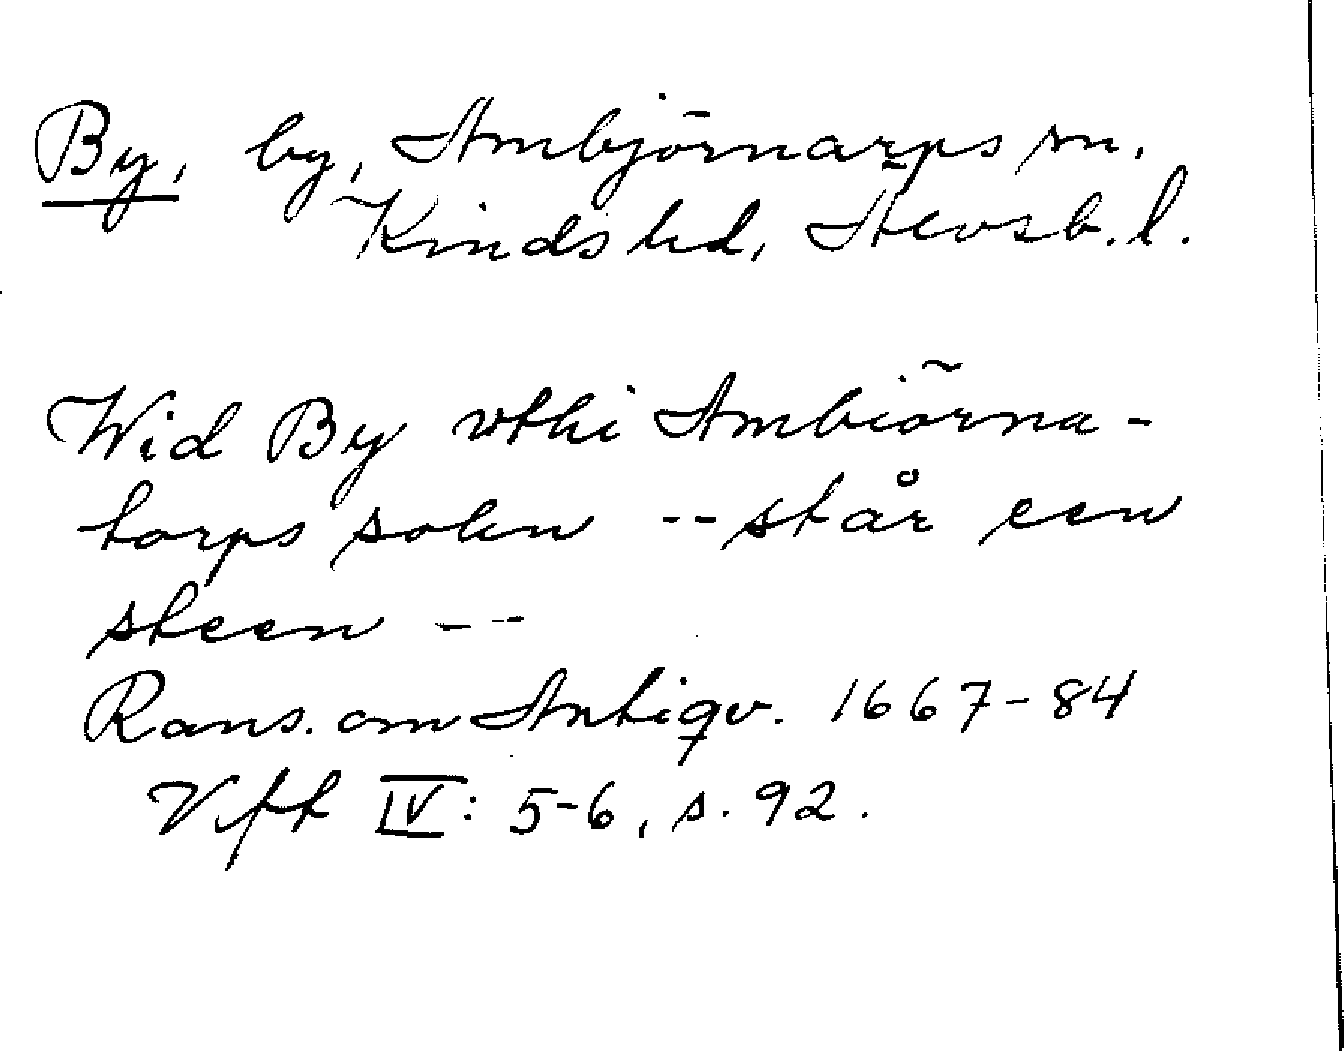 By, by, Ambjörnarps sn.
Kinds hd, Älvsb. l.
Wid By vthi Ambiörna-
torps sokn -- står een
steen ---
Rans. om Antiqv. 1667-84
Vft IV: 5-6, s. 92.